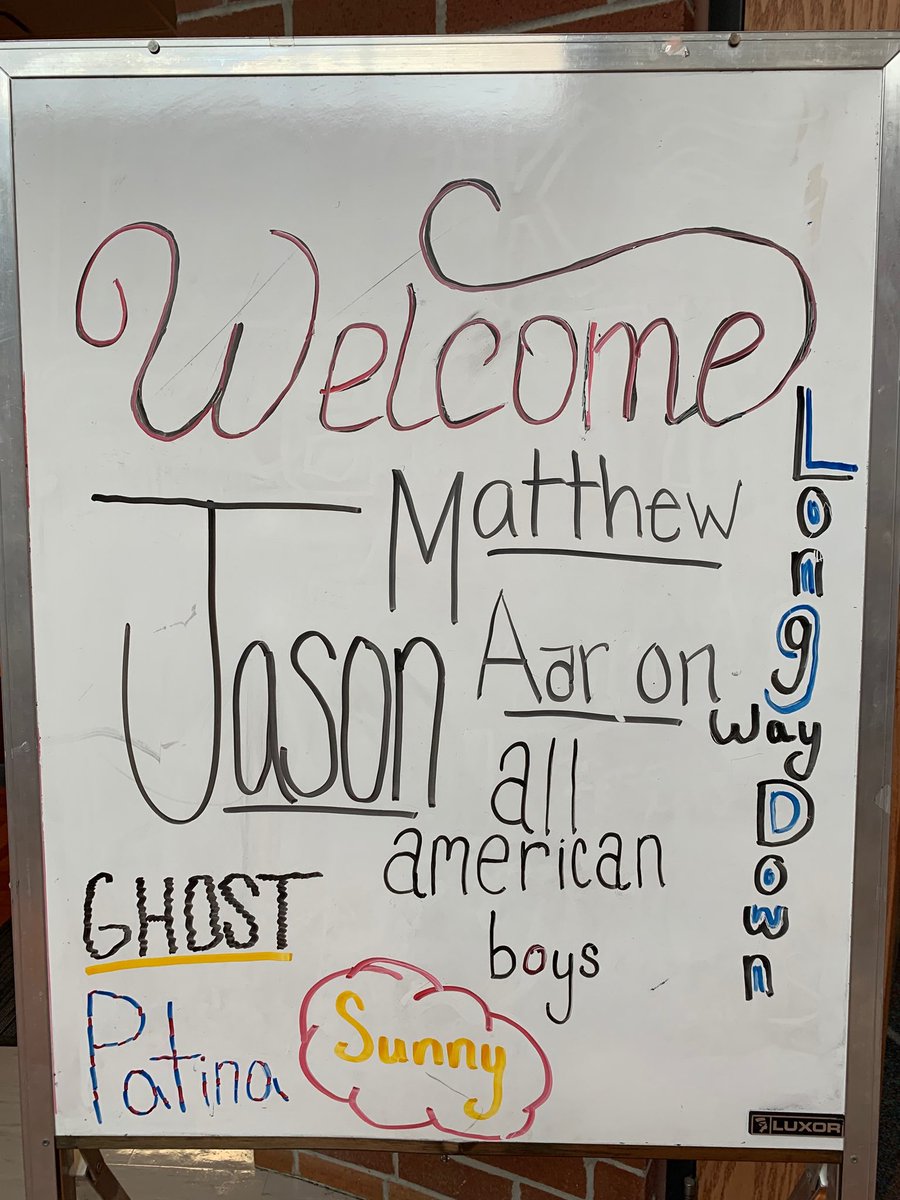 Welcome
Matthew
Jason
Aaron
all
american
boys
Long
Way
Down
GHOST
Patina
Sunny
LUXOR